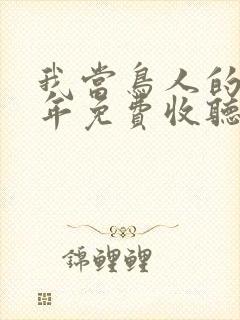 我當鳥人的
年免費收聽
錦鯉鯉